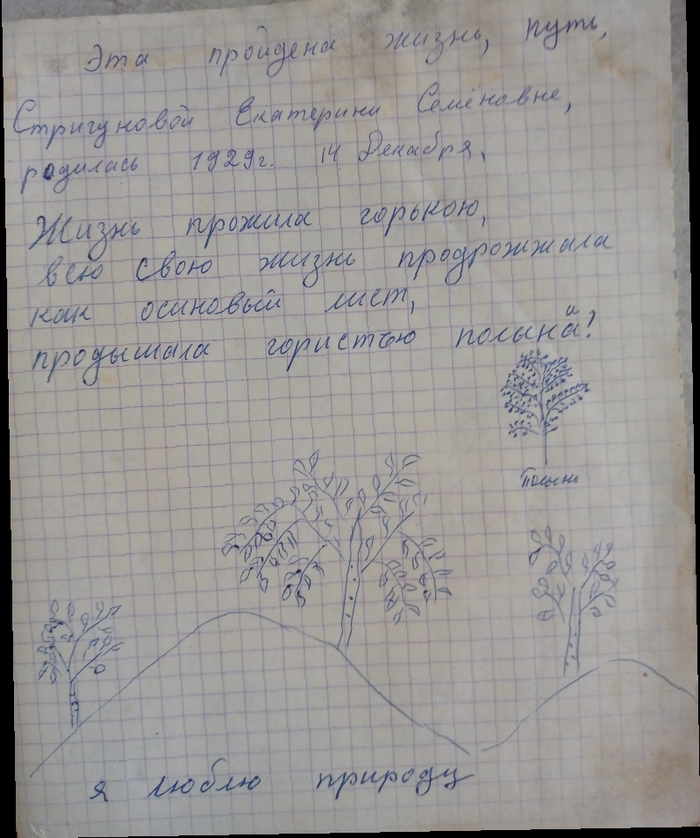 Эта пройдена жизнь, путь,
Стригуновой Екатерини Семёновне,
родилась 1929г. 14 Декабря,
Жизнь прожила горькою,
всю свою жизнь продрожжала
как осиновый лист,
продышала гористью полына!
Полынь
я люблю природу